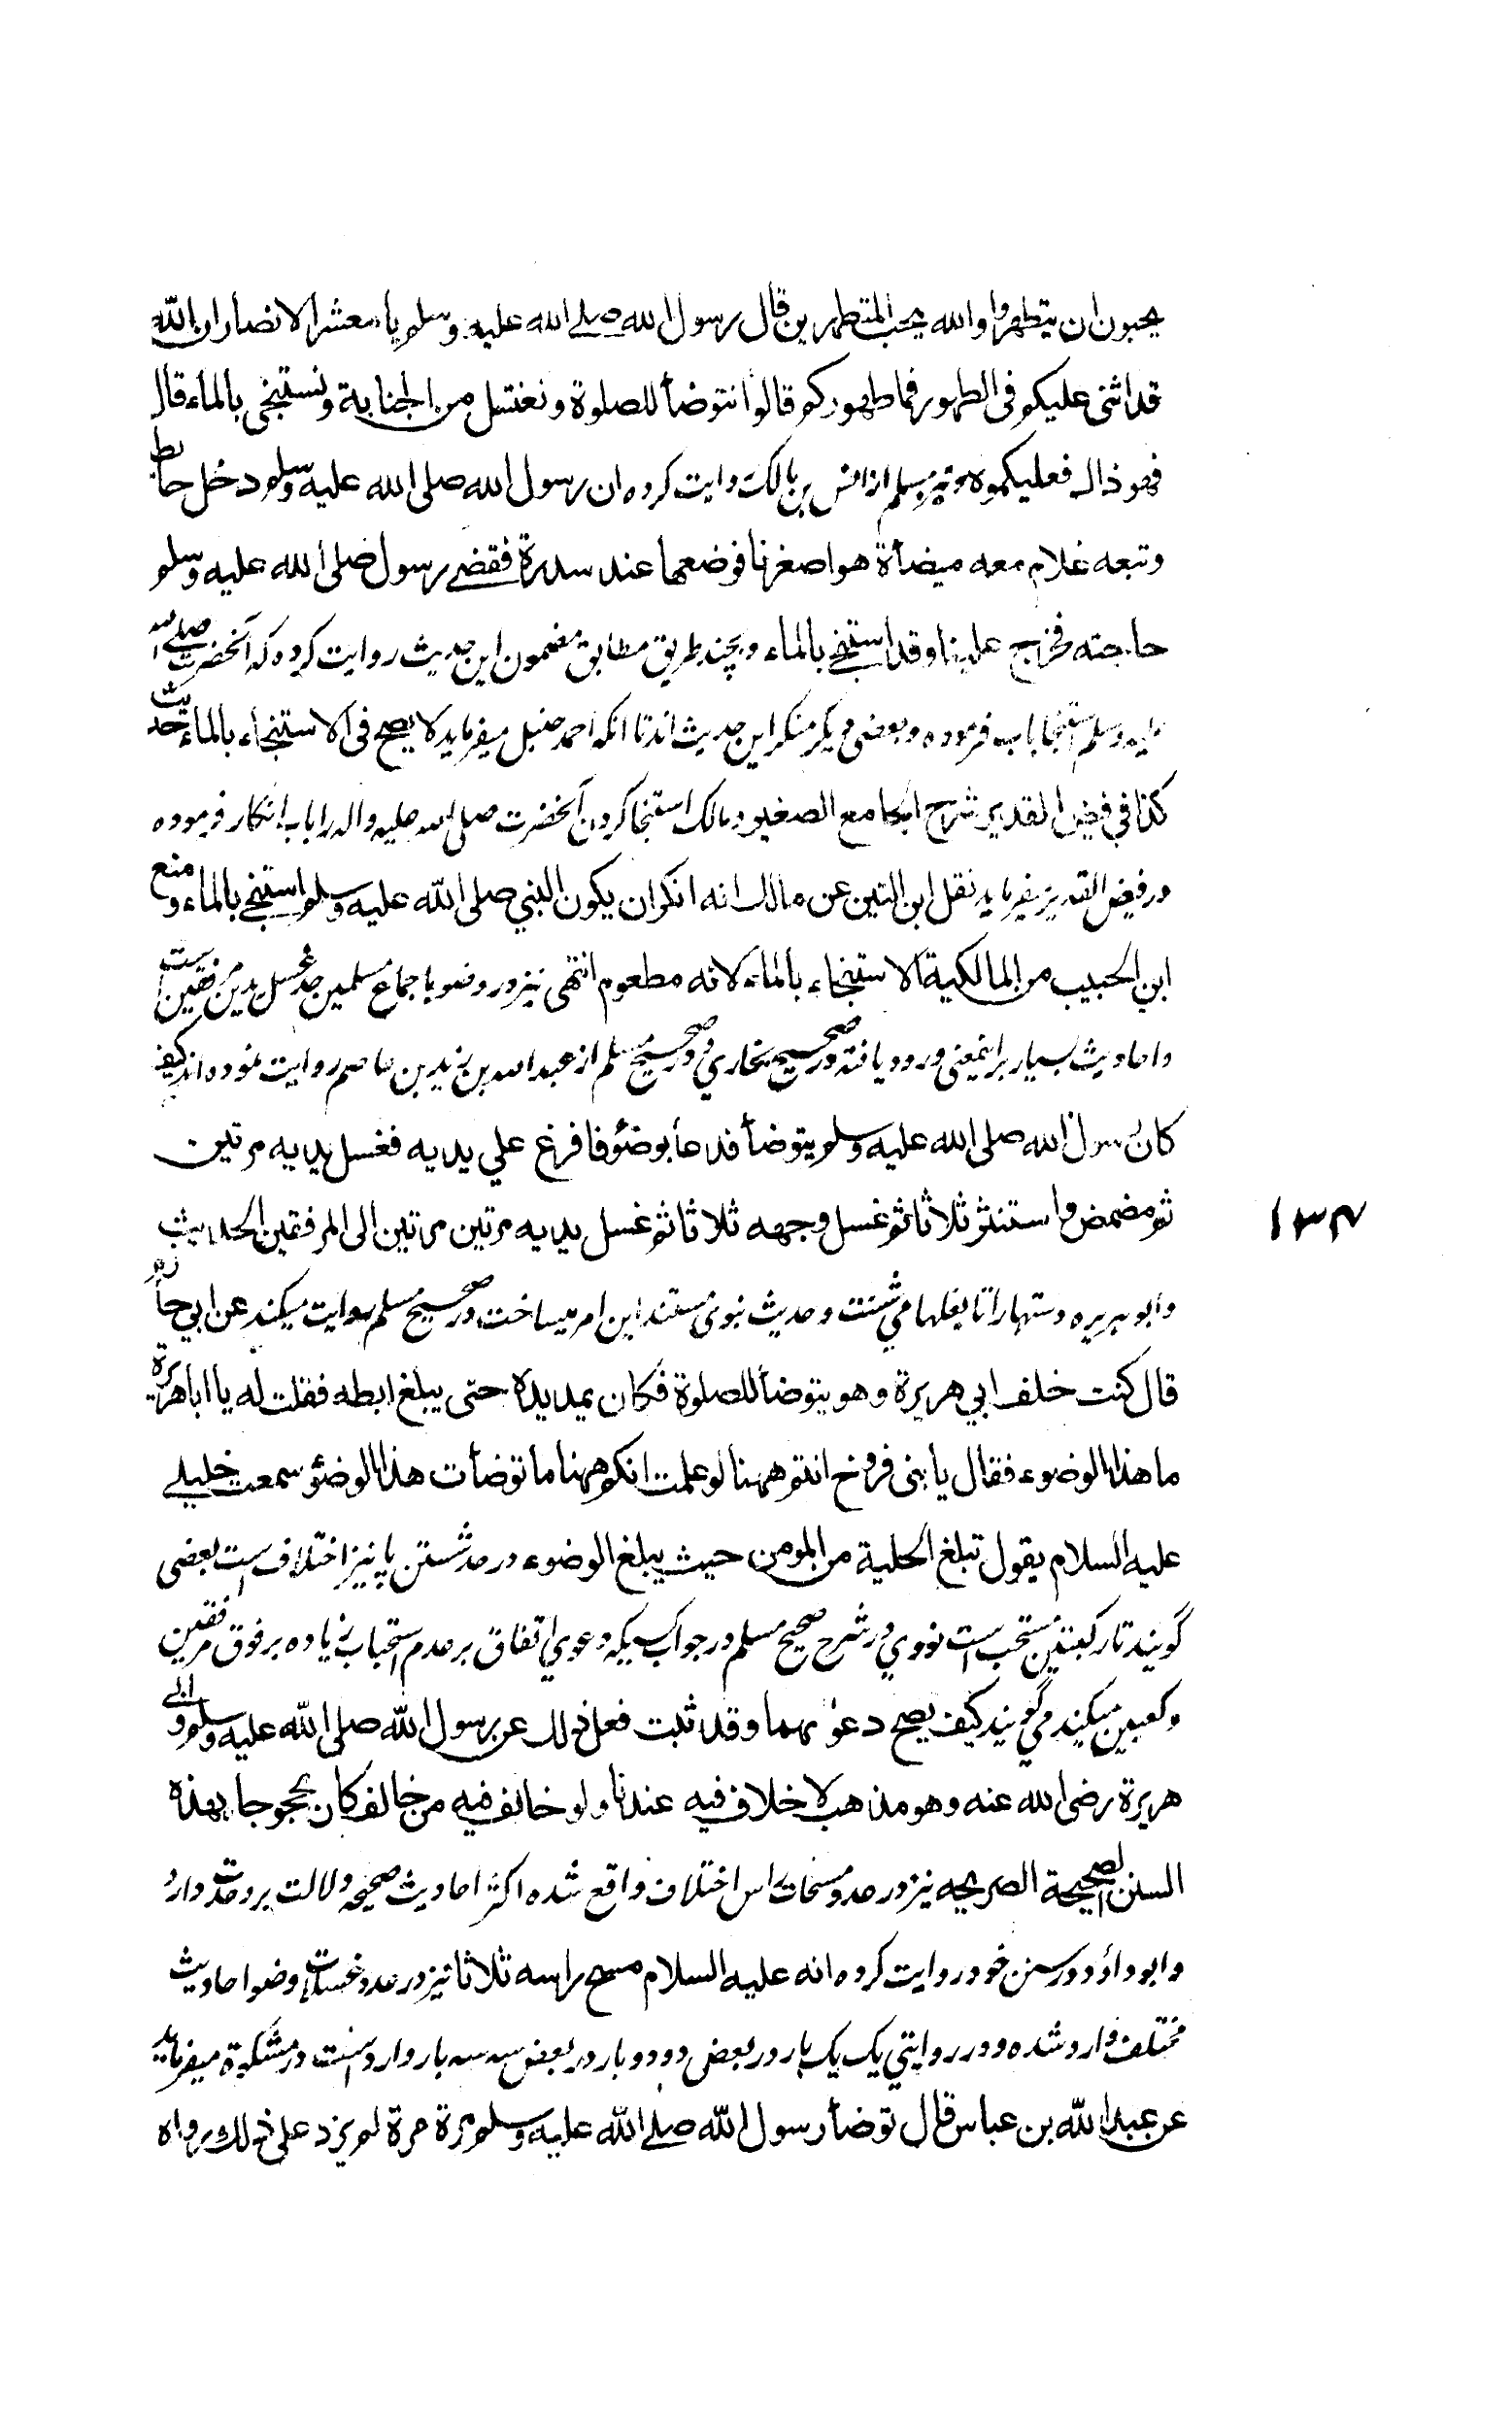 يحبون ان يتطهروا والله يحب المتطهرين قال رسول الله صلے الله عليه وسلم يا معشر الانصار ان الله
قد اثنى عليكم فى الطهور فما طهوركم قالوا نتوضأ للصلوة ونغتسل من الجنابة ونستنجى بالماء قال
فهو ذاك فعليكموه ونیز مسلم از انس بن مالک روایت کرده ان رسول الله صلى الله عليه وسلم دخل حائط
وتبعه غلام معه ميضأة هو اصغرنا فوضعها عند سدرة فقضے رسول صلى الله عليه وسلم
حاجته فخرج علينا وقد استنجے بالماء وبچند طریق مطابق مضمون این حدیث روایت کرده که آنحضرت صلے الله
علیه وسلم استنجا بآب فرموده وبعضی دیگر منکر این حدیث اند تا انکه احمد حنبل میفرماید لا يصح فى الاستنجاء بالماء حديث
كذا في فيض القدير شرح الجامع الصغير ومالک استنجا کردن آنحضرت صلى الله عليه واله را بآب انکار فرموده
در فیض القدیر میفرماید نقل ابن التين عن مالك انه انكر ان يكون النبي صلى الله عليه وسلم استنجے بالماء ومنع
ابن الحبيب من المالكية الاستنجاء بالماء لانه مطعوم انتهى نیز در وضو باجماع مسلمین حد غسل یدین مرفقین ست
واحادیث بسیار برینمعنی ورود یافته در صحیح بخاري ودر صحیح مسلم از عبد الله بن زید بن عاصم روایت نموده اند کیف
كان رسول الله صلى الله عليه وسلم يتوضأ فدعا بوضوء فافرغ علي يديه فغسل يديه مرتين
ثم مضمض واستنثر ثلاثا ثم غسل وجهه ثلاثا ثم غسل يديه مرتين مرتين الى المرفقين الحديث
١٣٤
وابو هریره دستها را تا بغلها می شست وحدیث نبوی مستند این امر میساخت در صحیح مسلم روایت میکند عن ابي حازم
قال كنت خلف ابي هريرة وهو يتوضأ للصلوة فكان يمد يده حتى يبلغ ابطه فقلت له يا ابا هريرة
ما هذا الوضوء فقال يا بنى فروخ انتم ههنا لو علمت انكم ههنا ما توضأت هذا الوضوء سمعت خليلے
عليه السلام يقول تبلغ الحلية من المومن حيث يبلغ الوضوء در حد شستن پا نیز اختلاف است بعضی
گویند تا رکبتین مستحب است نووي در شرح صحیح مسلم در جواب کسیکه دعوي اتفاق بر عدم استحباب زیاده بر فوق مرفقین
وکعبین میکند می گویند كيف يصح دعوٰهما وقد ثبت فعل ذلك عن رسول الله صلى الله عليه وسلم وابى
هريرة رضى الله عنه وهو مذهب لا خلاف فيه عندنا ولو خالف فيه من خالف كان محجوجا بهذه
السنن الصحيحة الصريحه نیز در عدد مسحات راس اختلاف واقع شده اکثر احادیث صحیحه دلالت بر وحدت دارد
وابو داؤد در سنن خود روایت کرده انه عليه السلام مسح راسه ثلاثا نیز در عدد غسلات وضو احادیث
مختلف وارد شده ودر روایتي یک یک بار در بعض دو دو بار در بعض سه سه بار وارد است در مشکوة میفرماید
عن عبد الله بن عباس قال توضأ رسول الله صلے الله عليه وسلم مرة مرة لم يزد على ذلك رواه